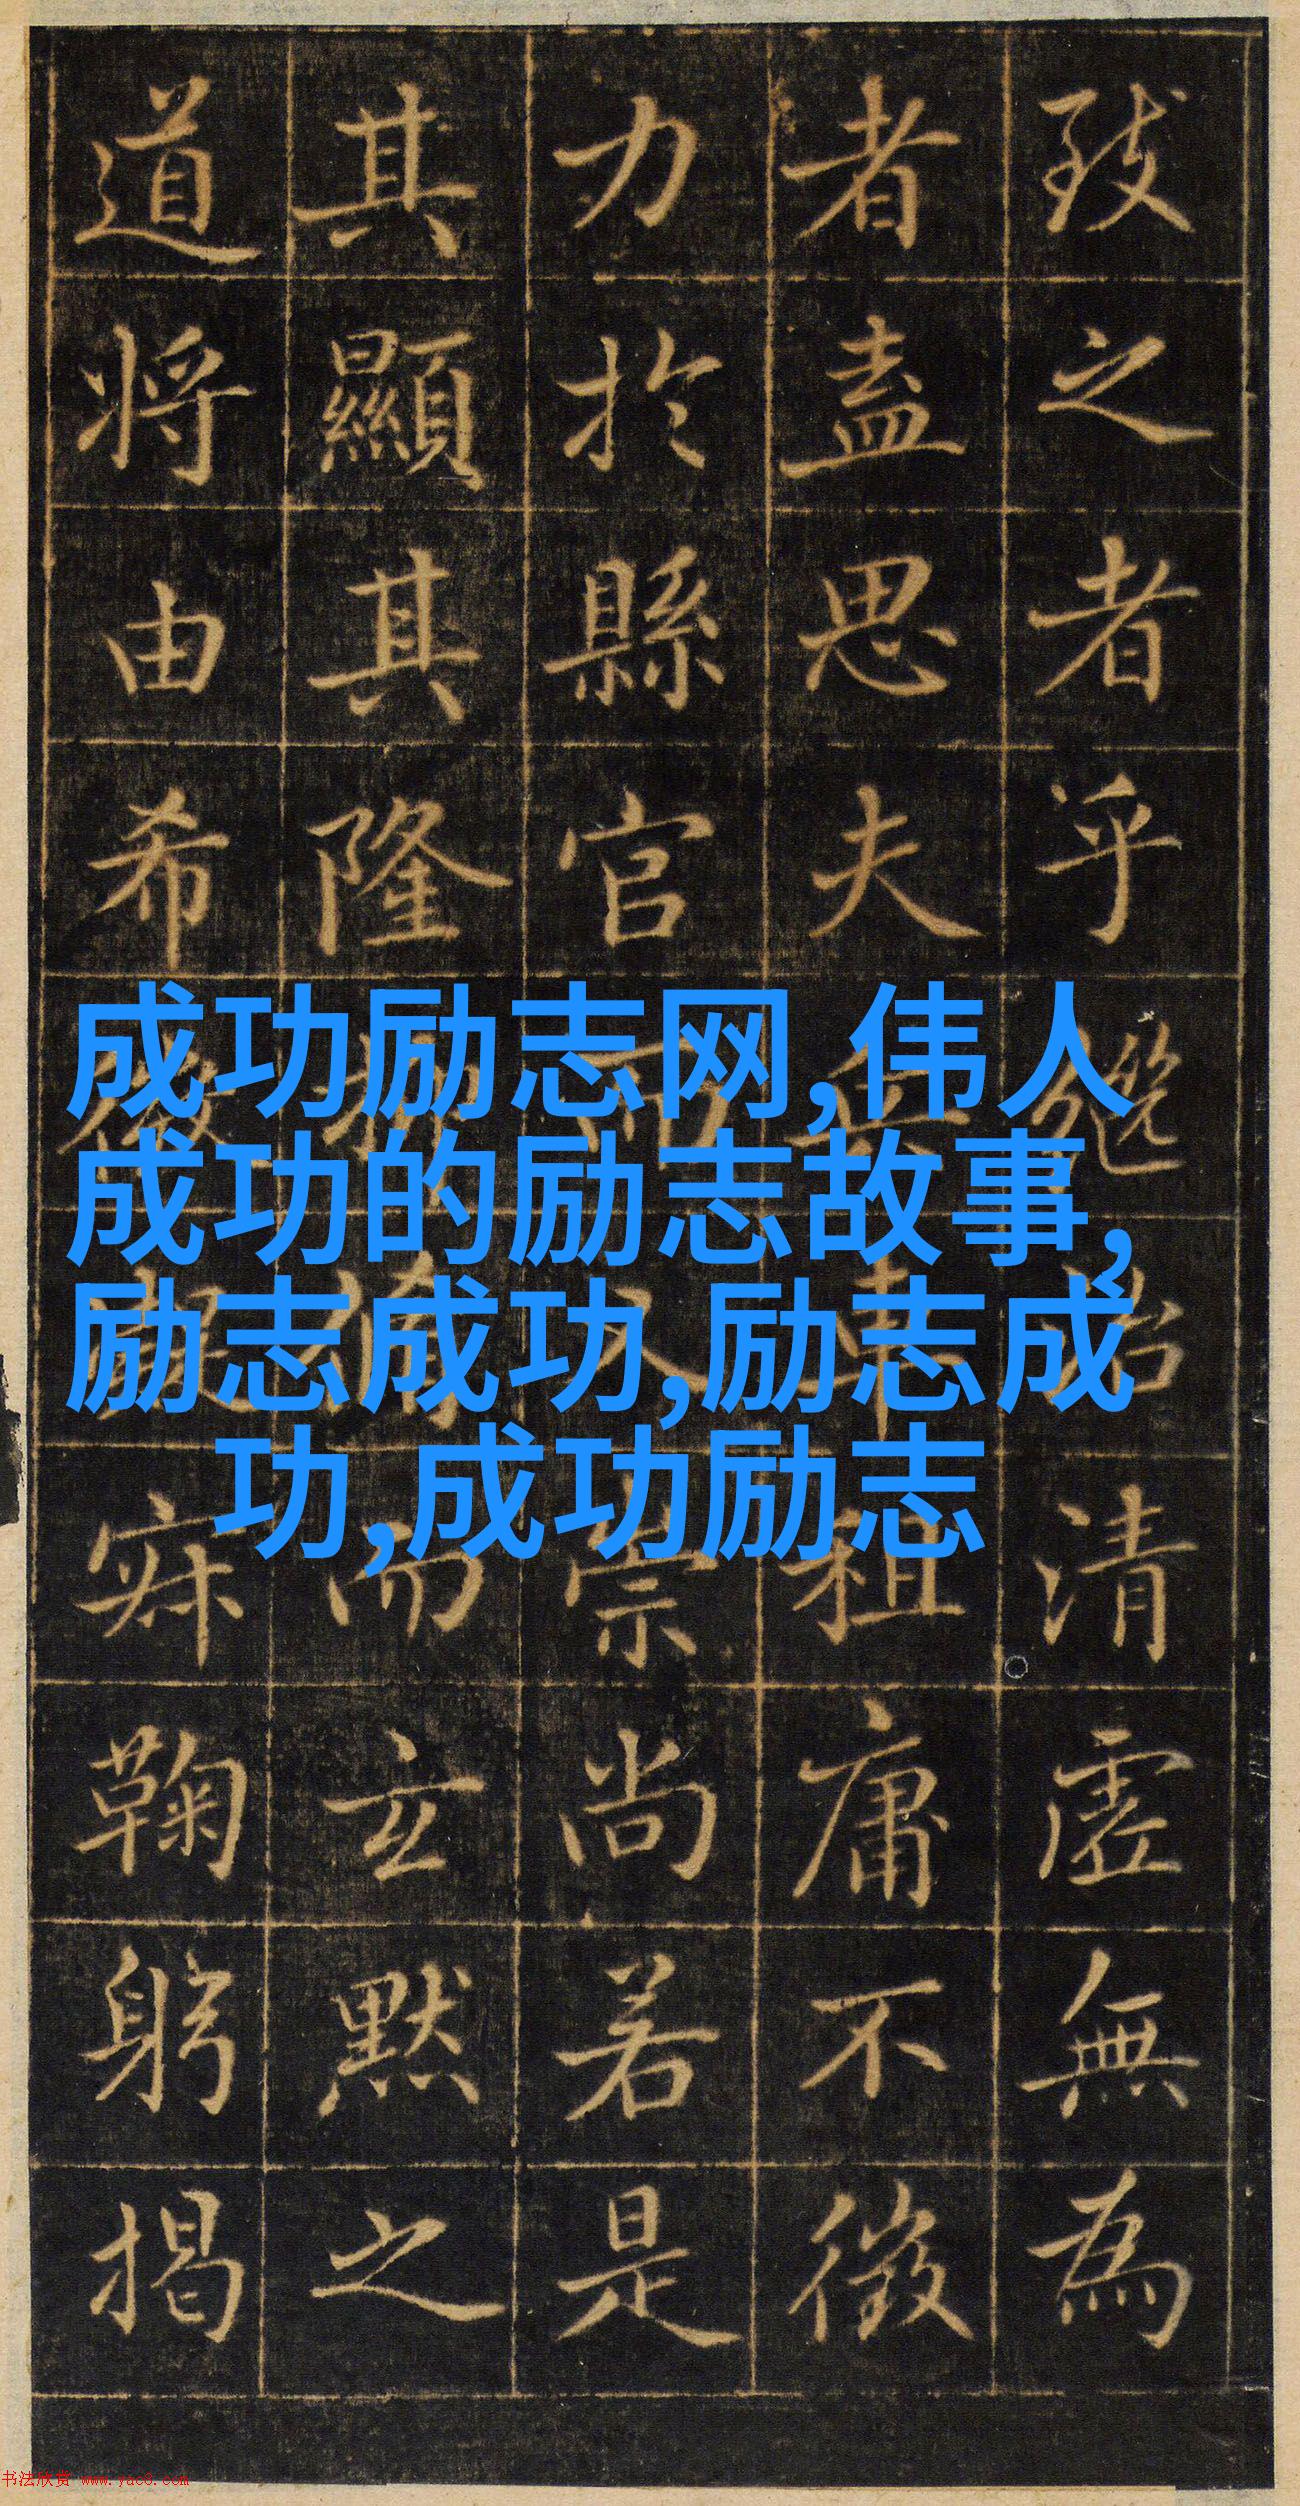 致之者乎清虛無為
者盡思夫兵車租庸不徵
力於縣官而又崇尚若是
其顯其隆而玄默之
道將由希微鞠躬揭
成功励志网,伟人
成功的励志故事,
励志成功,励志成
功,成功励志
书法欣赏 www.yac8.com